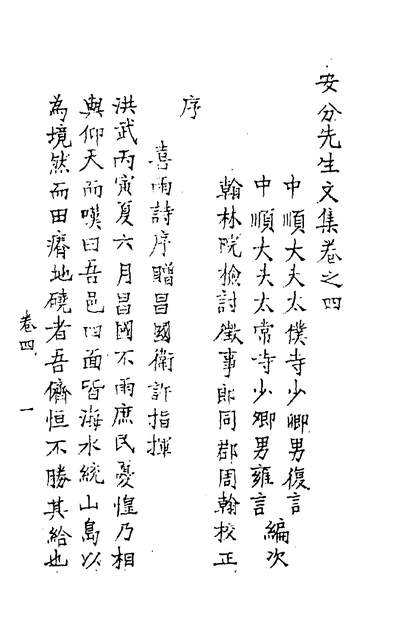 安分先生文集卷之四
中順大夫太僕寺少卿男復言
中順大夫太常寺少卿男雍言
編次
翰林院檢討徵事郎同郡周翰校正
序
喜雨詩序贈昌國衛許指揮
洪武丙寅夏六月昌國不雨庶民憂惶乃相
與仰天而嘆曰吾邑四面皆海水統山島以
為境然而田瘠地磽者吾儕恒不勝其給也
卷四
一